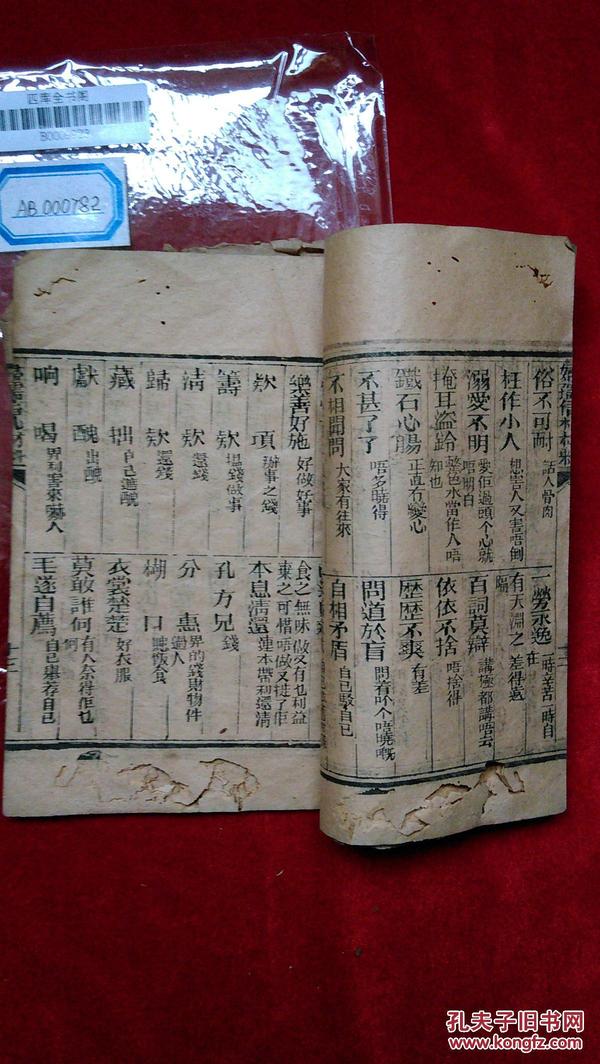 四库全书阁
AB 000782
俗不可耐 話人骨肉
枉作小人 想害人又害唔倒
溺愛不明 愛佢過頭个心就唔明白
掩耳盜鈴 詐當作人唔知也
鐵石心腸 正直冇變心
不甚了了 唔多曉得
不相聞問 大家有往來
一勞永逸 一時辛苦一時自在
有天淵之隔 差得遠
百詞莫辯 講極都講唔去
依依不捨 唔捨得
歷歷不爽 冇差
問道於盲 問着吓个唔曉嘅
自相矛盾 自己駁自己
樂善好施 好做好事
欵項 辦事之錢
籌欵 揾錢做事
清欵 還錢
歸欵 還錢
藏拙 自己遮醜
獻醜 出醜
响喝 畀利害來嚇人
食之無味棄之可惜 做又冇乜利益唔做又徒了佢
本息清還 連本帶利還清
孔方兄 錢
分惠 畀的錢財物件過人
糊口 聽搵食
衣裳楚楚 好衣服
莫敢誰何 冇人奈得佢乜何
毛遂自薦 自己舉荐自己
十三
孔夫子旧书网
www.kongfz.com